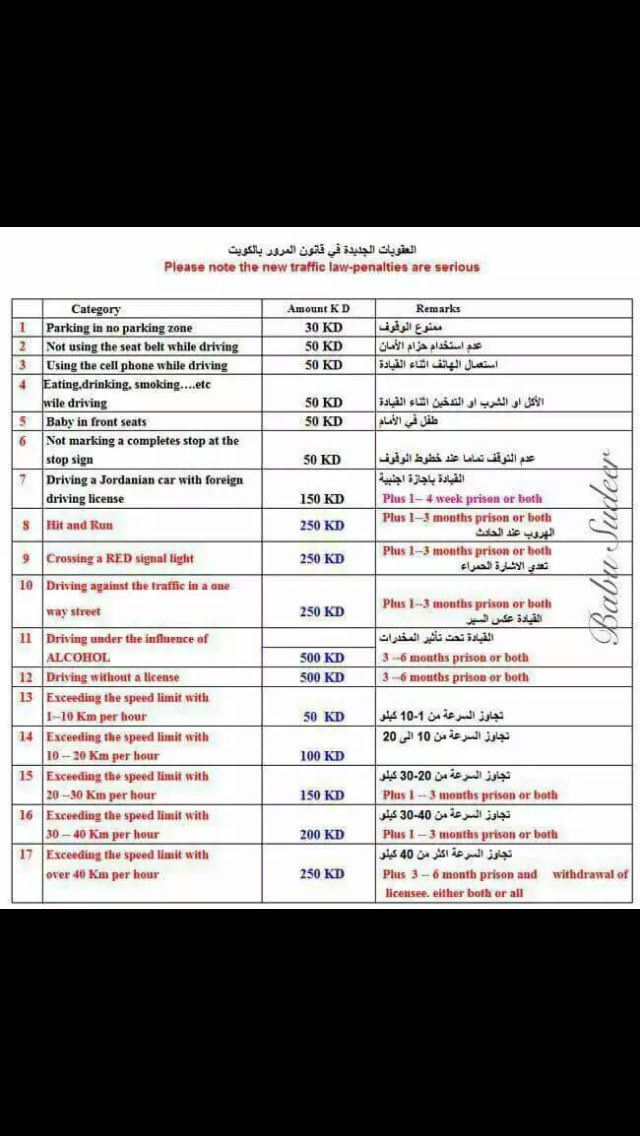 العقوبات الجديدة في قانون المرور بالكويت
Please note the new traffic law-penalties are serious
Category Amount K D Remarks
1 Parking in no parking zone 30 KD ممنوع الوقوف
2 Not using the seat belt while driving 50 KD عدم استخدام حزام الأمان
3 Using the cell phone while driving 50 KD استعمال الهاتف اثناء القيادة
4 Eating,drinking, smoking....etc
wile driving 50 KD الأكل او الشرب او التدخين اثناء القيادة
5 Baby in front seats 50 KD طفل في الأمام
6 Not marking a completes stop at the
stop sign 50 KD عدم التوقف تماما عند خطوط الوقوف
7 Driving a Jordanian car with foreign القيادة باجازة اجنبية
driving license 150 KD Plus 1-- 4 week prison or both
8 Hit and Run 250 KD Plus 1--3 months prison or both
الهروب عند الحادث
9 Crossing a RED signal light 250 KD Plus 1--3 months prison or both
تعدي الاشارة الحمراء
10 Driving against the traffic in a one
way street 250 KD Plus 1--3 months prison or both
القيادة عكس السير
11 Driving under the influence of القيادة تحت تأثير المخدرات
ALCOHOL 500 KD 3 --6 months prison or both
12 Driving without a license 500 KD 3 --6 months prison or both
13 Exceeding the speed limit with
1--10 Km per hour 50 KD تجاوز السرعة من 1-10 كيلو
14 Exceeding the speed limit with تجاوز السرعة من 10 الى 20
10 -- 20 Km per hour 100 KD
15 Exceeding the speed limit with تجاوز السرعة من 20-30 كيلو
20 --30 Km per hour 150 KD Plus 1 -- 3 months prison or both
16 Exceeding the speed limit with تجاوز السرعة من 40-30 كيلو
30 -- 40 Km per hour 200 KD Plus 1 -- 3 months prison or both
17 Exceeding the speed limit with تجاوز السرعة اكثر من 40 كيلو
over 40 Km per hour 250 KD Plus 3 -- 6 month prison and withdrawal of
licensee. either both or all
Babu Sudeer